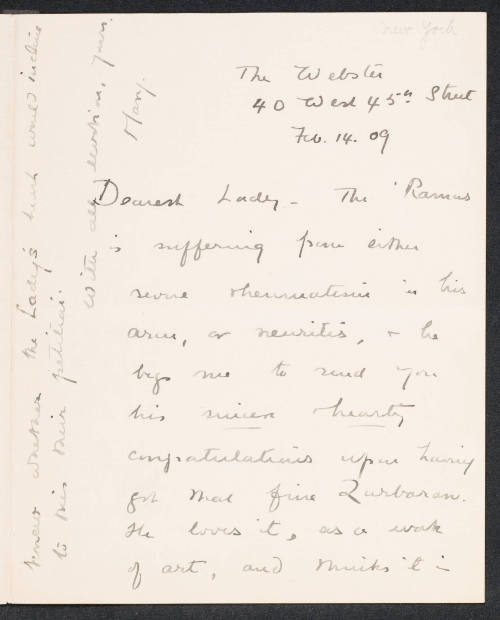 New York
The Webster
40 West 45th Street
Feb. 14. 09
Dearest Lady - The "Ramus
is suffering from either
severe rheumatism in his
arm, or neuritis, & he
begs me to send you
his sincere hearty
congratulations upon having
got that fine Zurbaran.
He loves it, as a work
of art, and thinks it is
whether the Lady's heart would incline
to this their petition.
With all devotion, yours.
Mary.